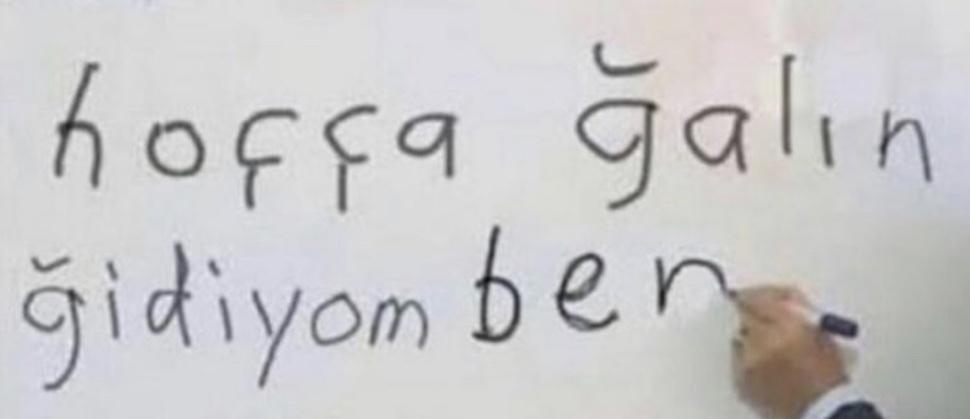 hoçça ğalın
ğidiyom ben